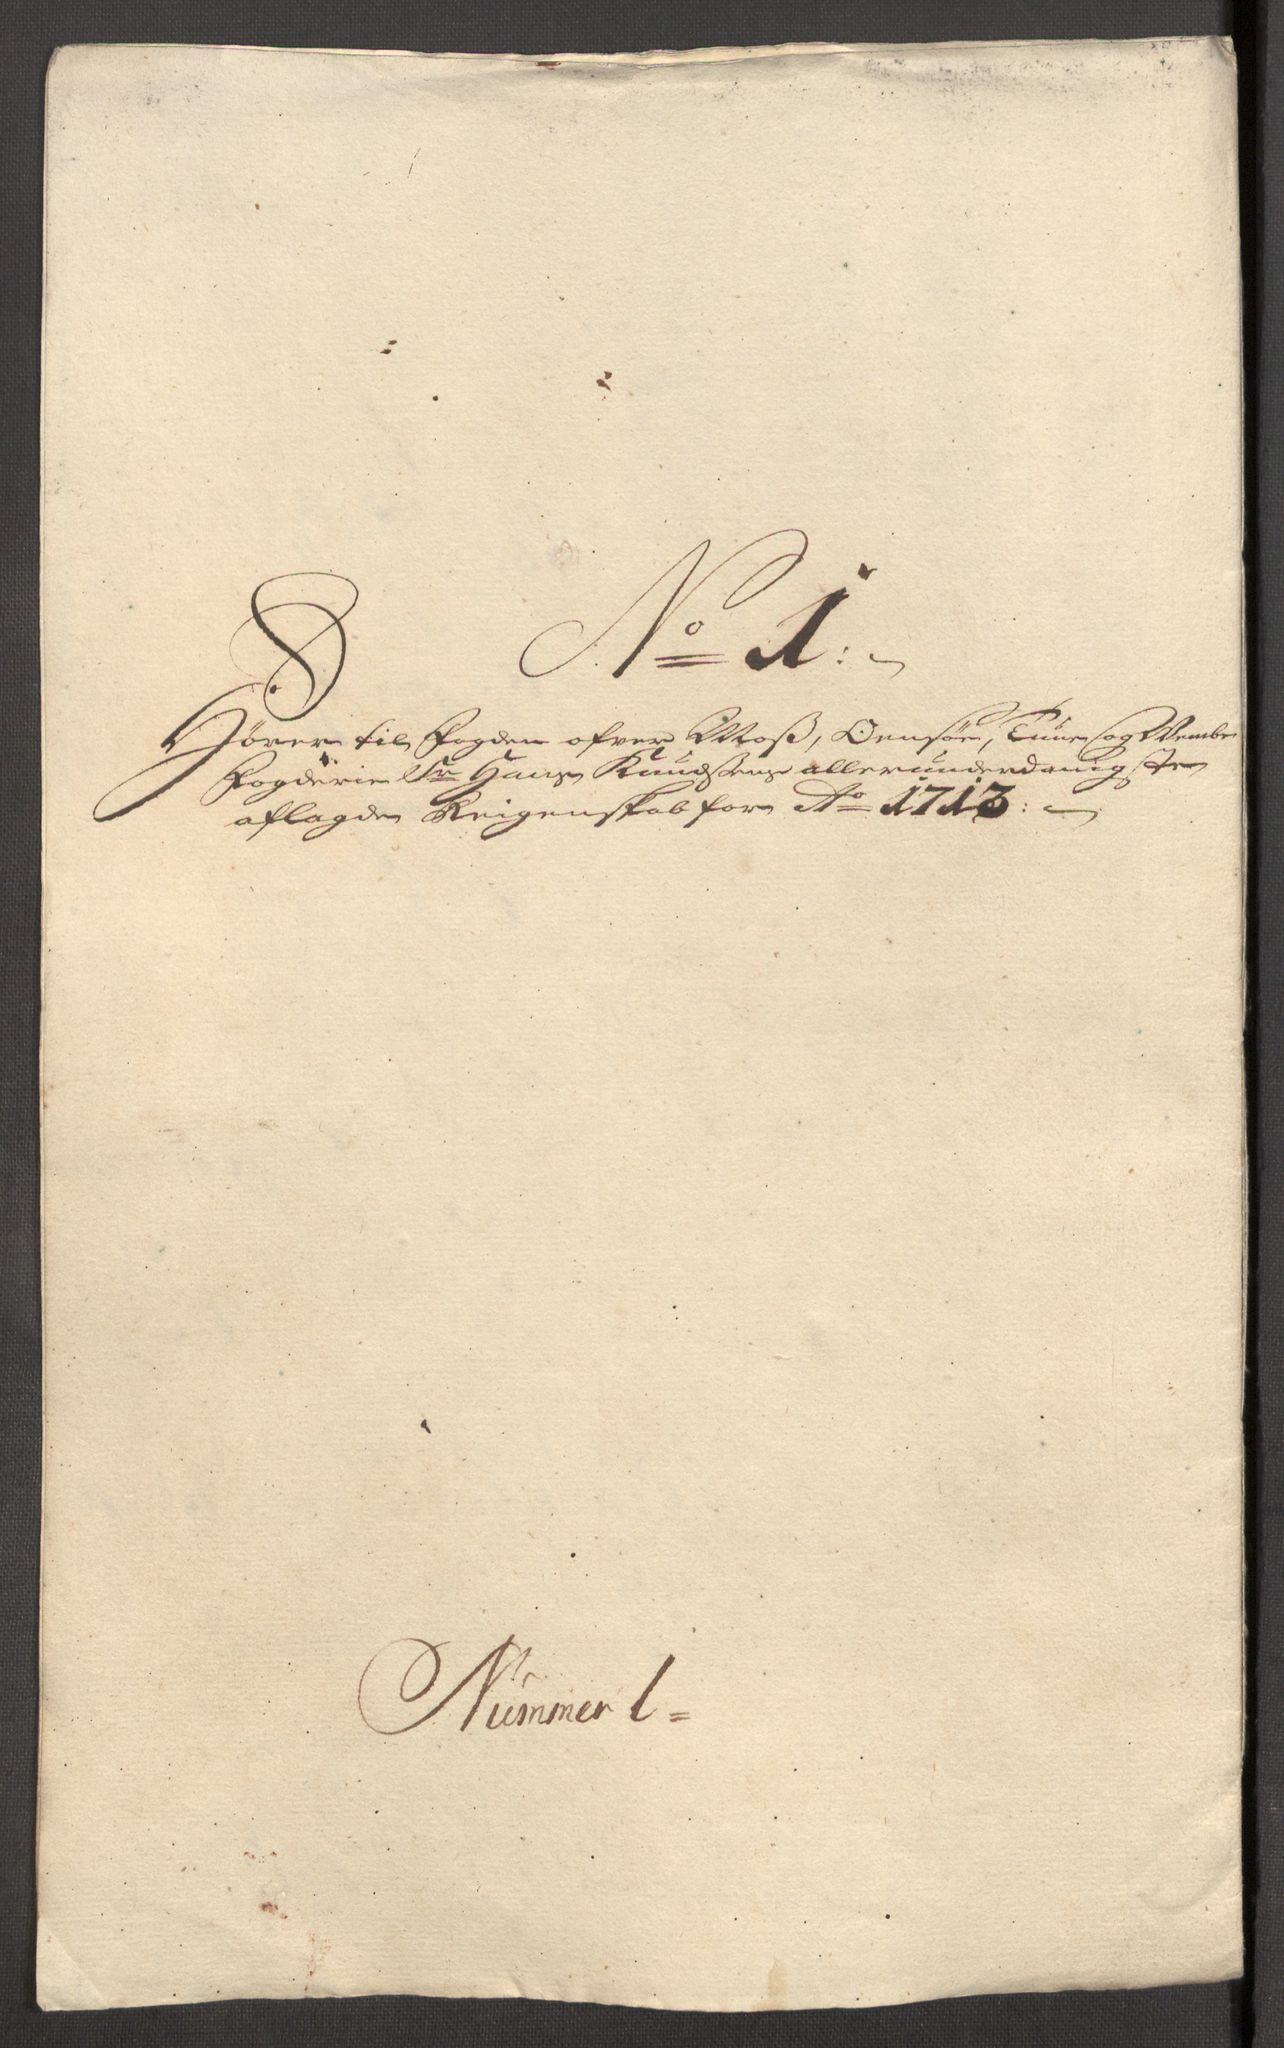 No 1:
Hörer til Fogden ofver Moß, Onsöe, Tune og Wembe
Fogderie Sr Hans Knudsens allerunderdanigste
aflagde Reigenskab for Ao 1713:
Nummer 1=